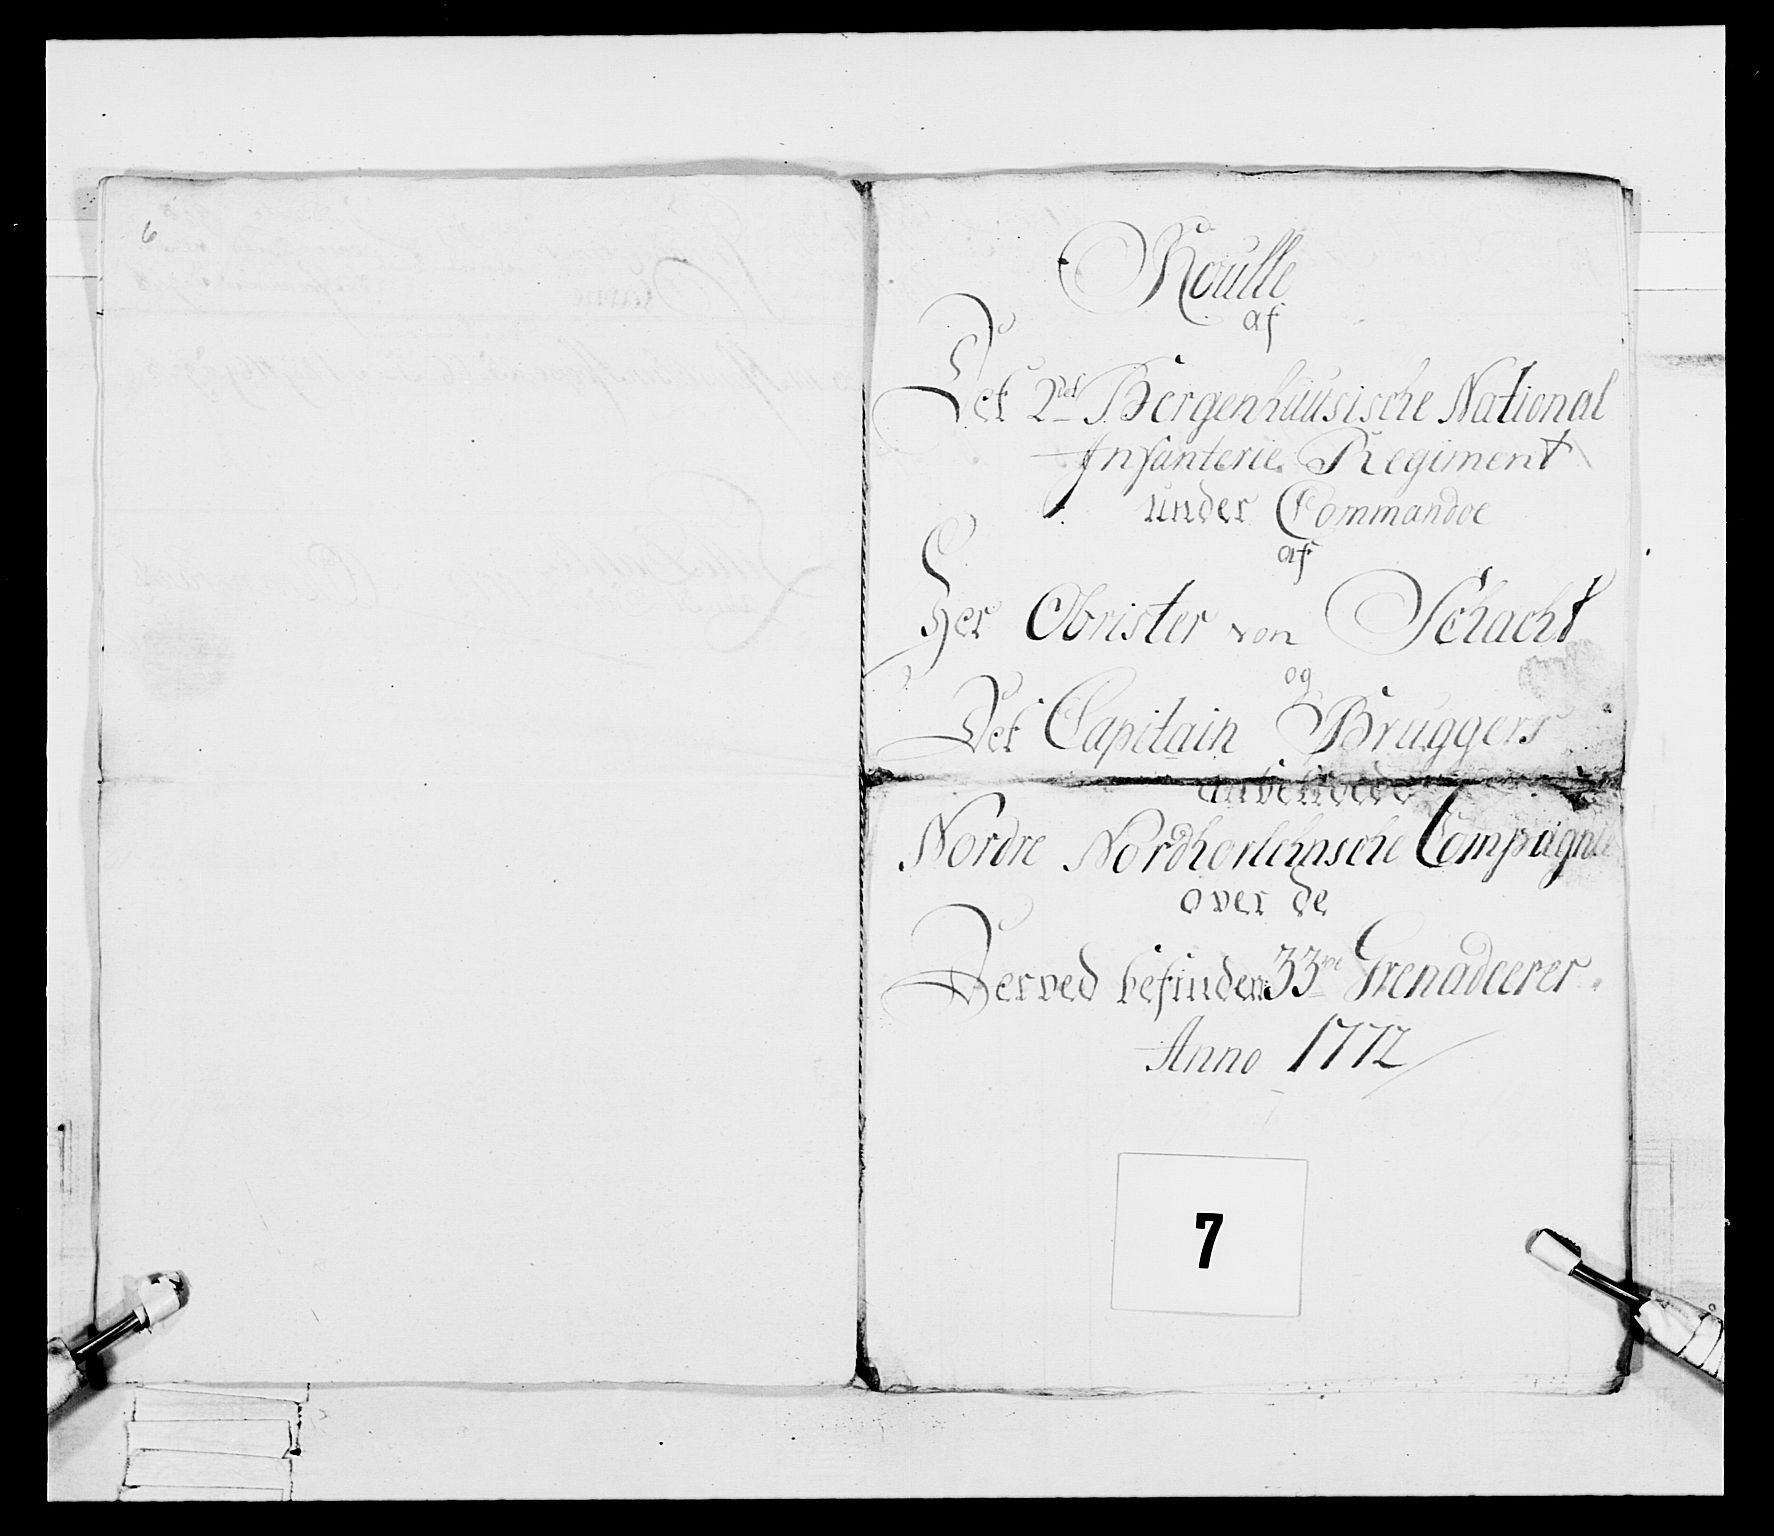 6
Roulle
af
Det 2det Bergenhuusische National
Infanterie Regiment
under Commandoe
af
Her Obrister von Schacht
og
Det Capitain Bruggers
anbetroede
Nordre Nordhorlehnsche Compagnie
over de
Derved befinden 33ve Grenadeerer.
Anno 1772
7